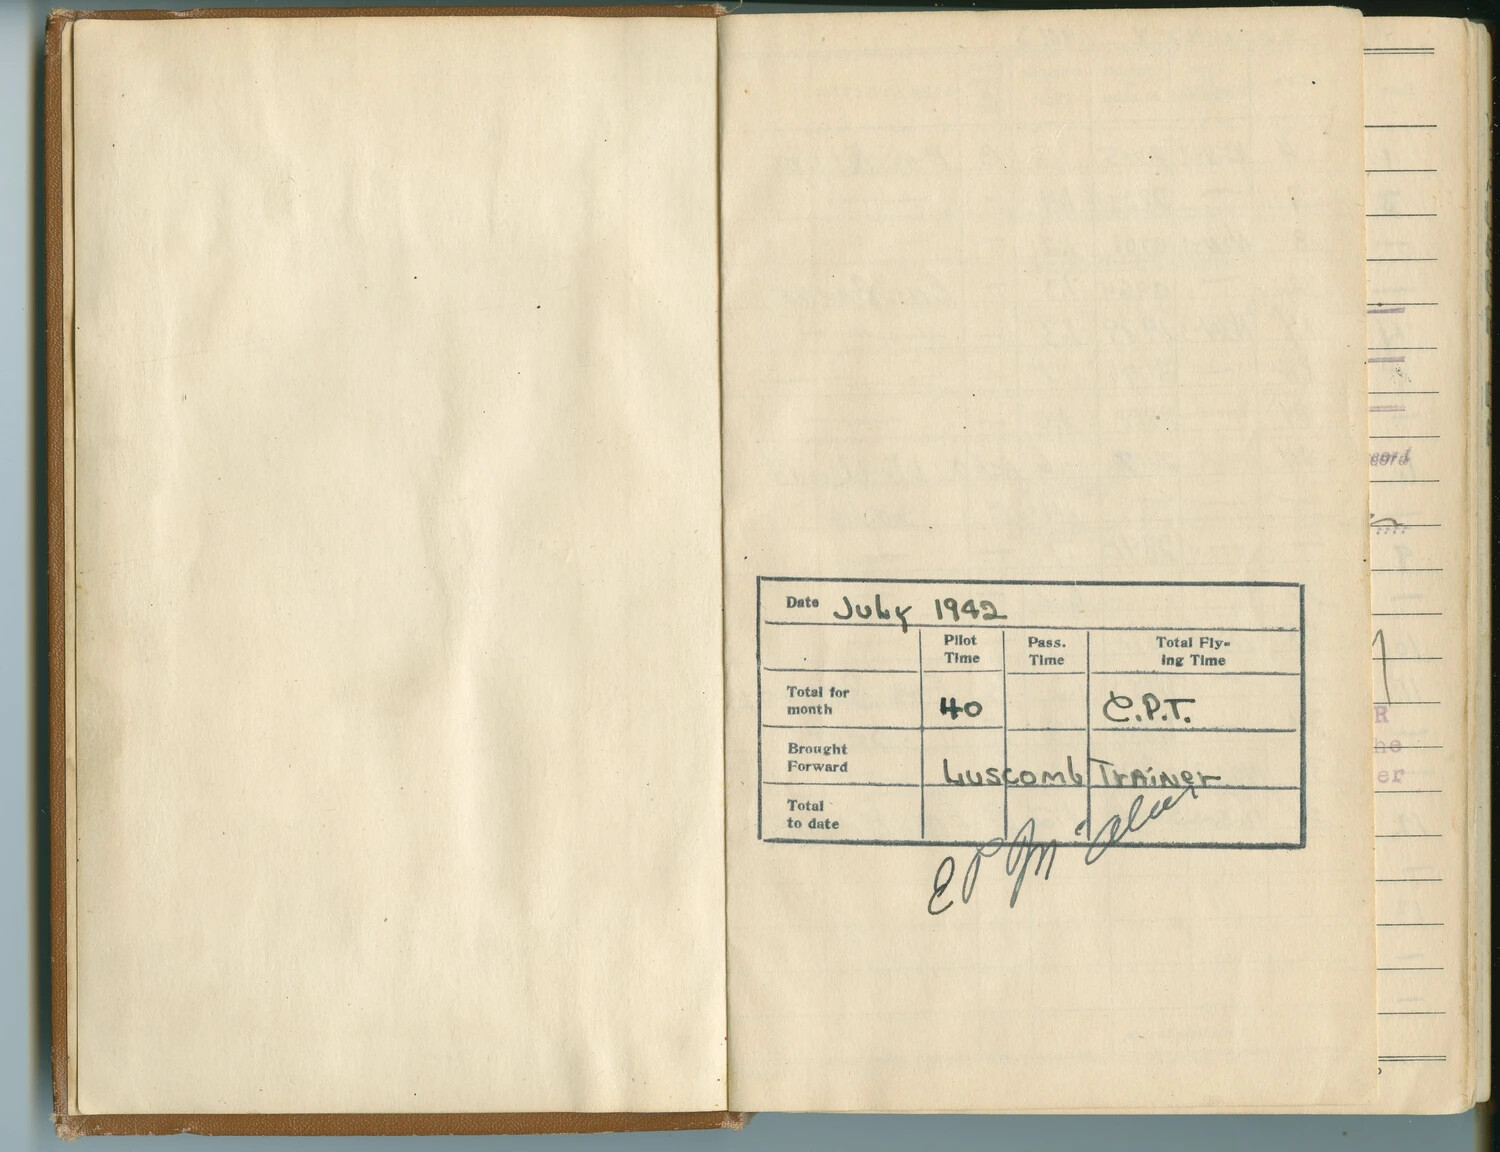 Date July 1942
Pilot Time
Pass. Time
Total Fly-ing Time
Total for month 40 C.P.T.
Brought Forward Luscomb Trainer
Total to date
E P
R
he
er